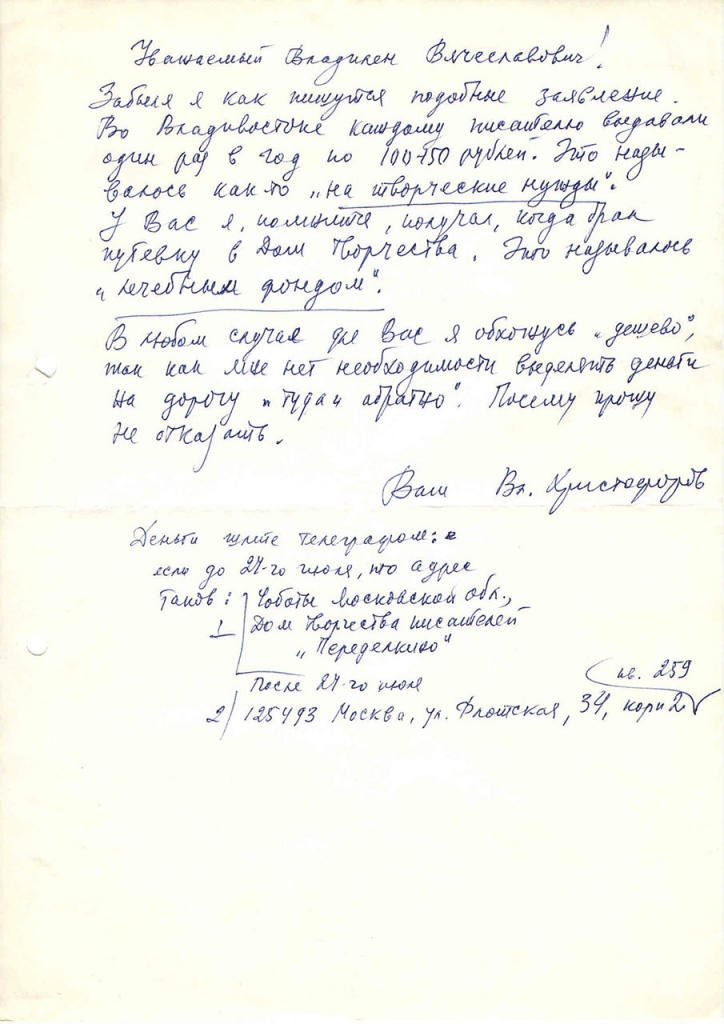 Уважаемый Владилен Вячеславович!
Забыл я как пишутся подобные заявление.
Во Владивостоке каждому писателю выдавали
один раз в год по 100-150 рублей. Это назы-
валось как-то „на творческие нужды".
У Вас я, помнится, получал, когда брал
путевку в Дом творчества. Это называлось
„лечебным фондом".
В любом случае для Вас я обхожусь „дешево",
так как мне нет необходимости выделять деньги
на дорогу „туда и обратно". Посему прошу
не отказать.
Ваш Вл. Христофоров
Деньги шлите телеграфом:
если до 24-го июля, то адрес
таков: Чоботы Московской обл.,
1 Дом творчества писателей
„Переделкино"
После 24-го июля
2) 125493 Москва, ул. Флотская, 34, корп 2
кв. 259